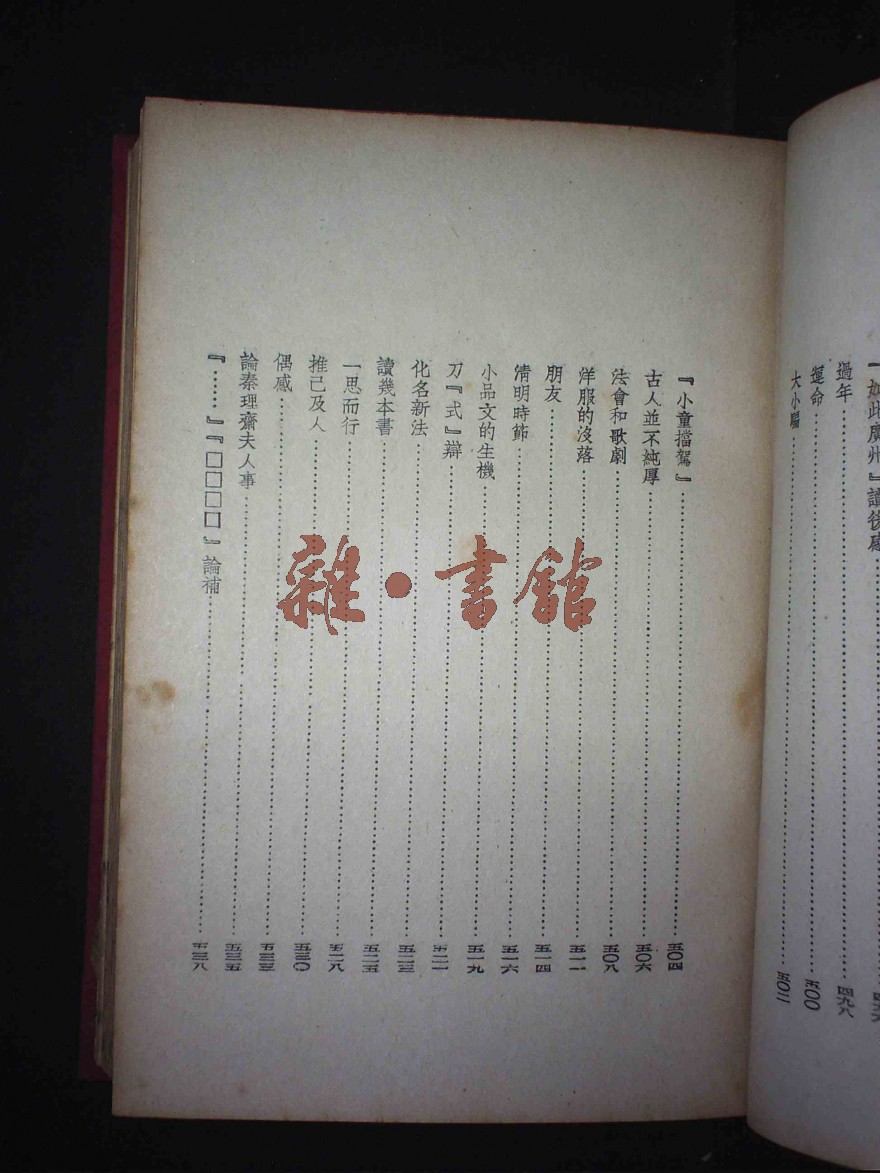 如此廣州』讀後感
過年……四九八
運命……五〇〇
大小騙……五〇二
『小童擋駕』……五〇四
古人並不純厚……五〇六
法會和歌劇……五〇八
洋服的沒落……五一一
朋友……五一四
清明時節……五一六
小品文的生機……五一九
刀『式』辯……五二一
化名新法……五二三
讀幾本書……五二五
一思而行……五二八
推己及人……五三〇
偶感……五三三
論秦理齋夫人事……五三五
『……』『□□□□』論補……五三八
雜·書館